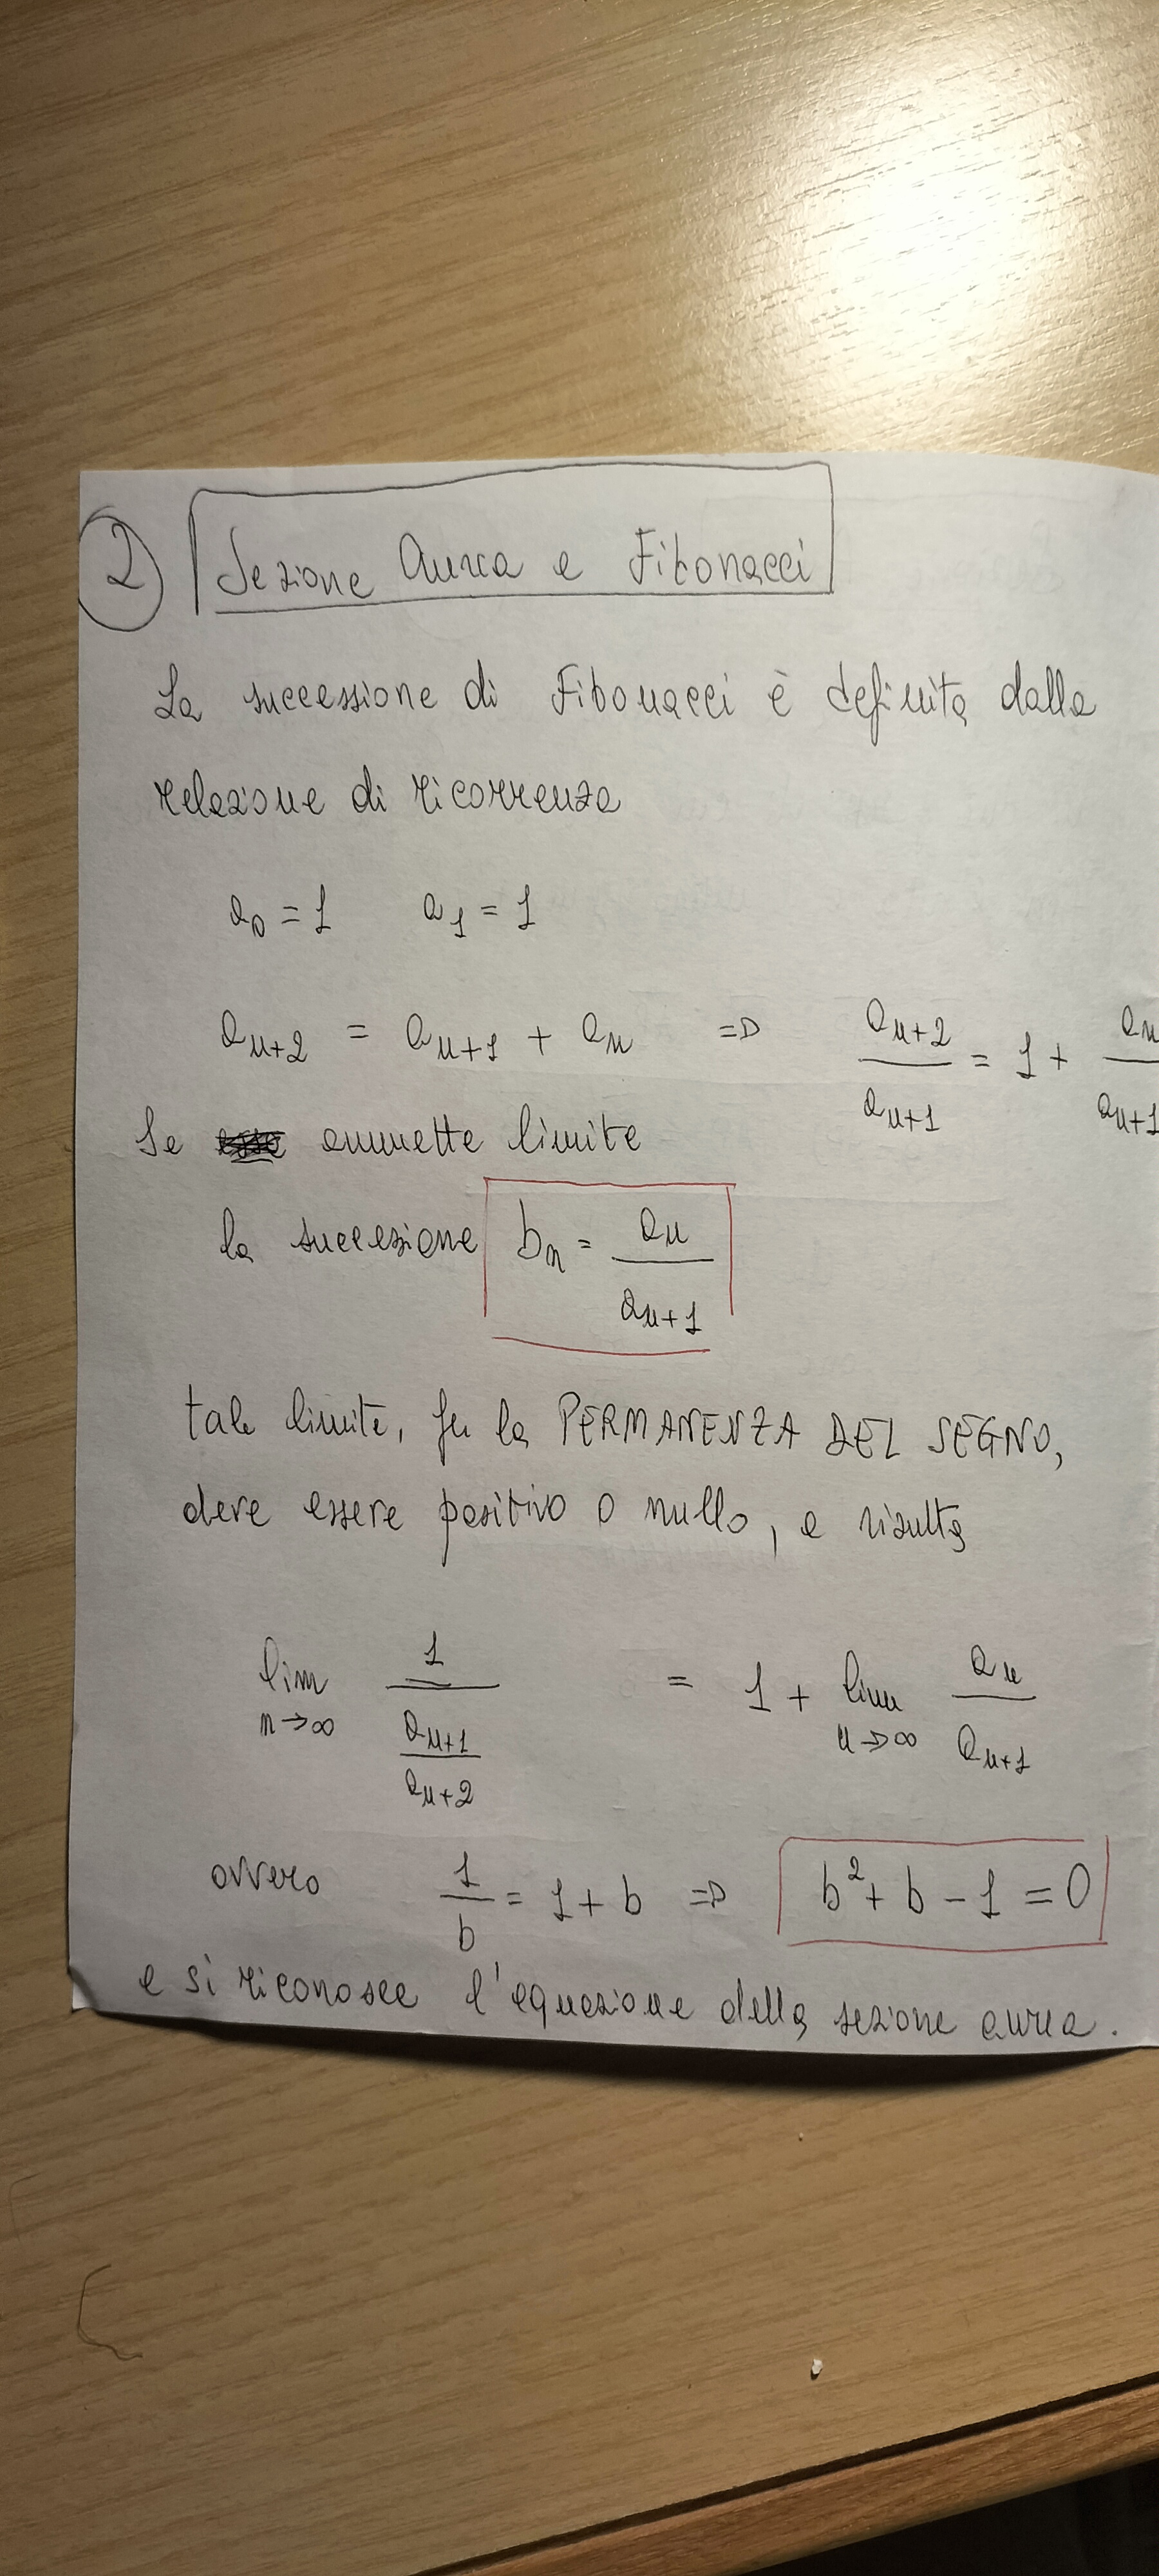 2 Sezione Aurea e Fibonacci
La successione di Fibonacci è definita dalla
relazione di ricorrenza
a₀ = 1 a₁ = 1
aₙ₊₂ = aₙ₊₁ + aₙ => aₙ₊₂/aₙ₊₁ = 1 + aₙ/aₙ₊₁
Se ammette limite
la successione bₙ = aₙ/aₙ₊₁
tale limite, per la PERMANENZA DEL SEGNO,
deve essere positivo o nullo, e risulta
lim n→∞ 1/(aₙ₊₁/aₙ₊₂) = 1 + lim n→∞ aₙ/aₙ₊₁
ovvero 1/b = 1 + b => b² + b - 1 = 0
e si riconosce l'equazione della sezione aurea.